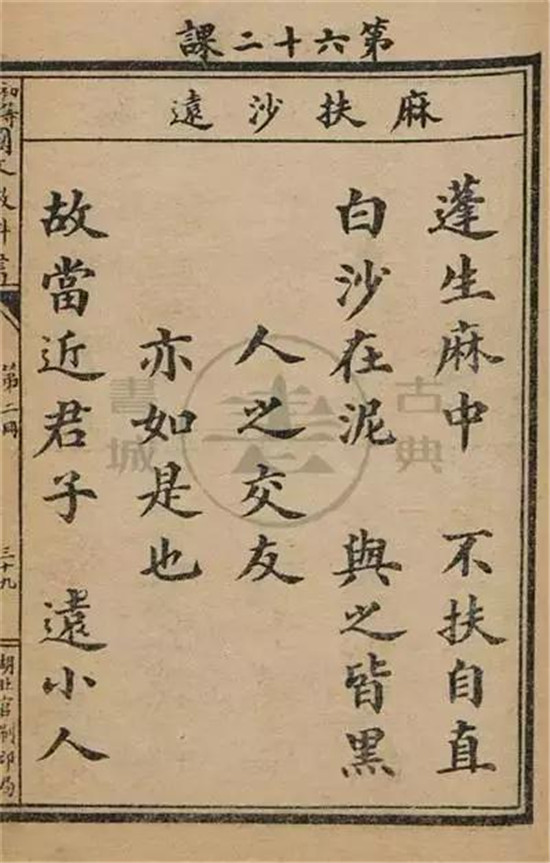 第六十二課
麻扶沙遠
蓬生麻中 不扶自直
白沙在泥 與之皆黑
人之交友
亦如是也
故當近君子 遠小人
初等國文教科書
第二冊
三十九
湖北官刷印局
古典
書城